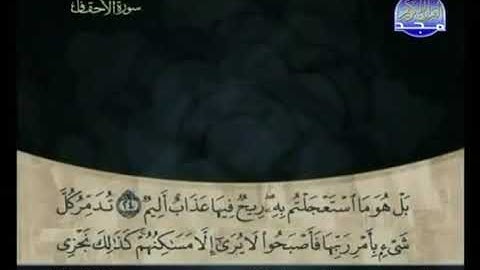 سورة الأحقاف
مجد
بَلْ هُوَ مَا ٱسْتَعْجَلْتُم بِهِۦ رِيحٌ فِيهَا عَذَابٌ أَلِيمٌ ٢٤ تُدَمِّرُ كُلَّ
شَىْءٍۭ بِأَمْرِ رَبِّهَا فَأَصْبَحُوا۟ لَا يُرَىٰٓ إِلَّا مَسَـٰكِنُهُمْ كَذَٰلِكَ نَجْزِى